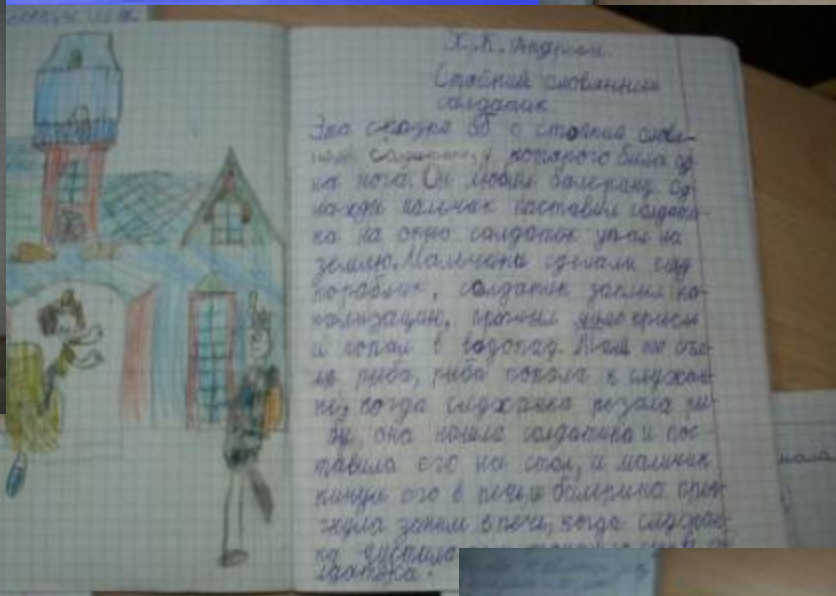 Х. К. Андерсен.
Стойкий оловянный
солдатик.
Эта сказка об о стойком оловя-
нном солдатике, у которого была од
на нога. Он любил балерину. Од-
нажды мальчик поставил солдати-
ка на окно солдатик упал на
землю. Мальчики сделали
кораблик, солдатик заплыл ка-
нализацию, проплыл мимо крысы
и попал в водопад. Там его съе-
ла рыба, рыба попала к служан-
ке, когда служанка резала ры-
бу, она нашла солдатика и пос-
тавила его на стол, и мальчик
кинул его в печь и балерина
за ним в печь, когда служан-
ка